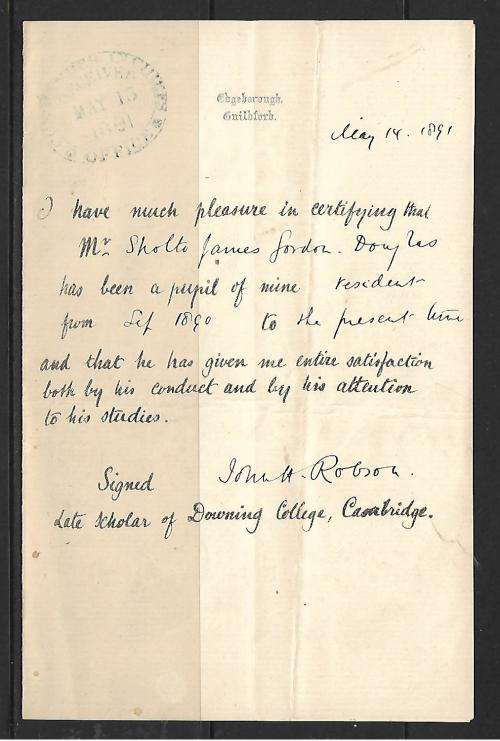 RECEIVED
MAY 15
1891
OFFICE
Edgeborough,
Guildford.
May 14. 1891
I have much pleasure in certifying that
Mr. Sholto James Gordon. Douglas
has been a pupil of mine resident
from Sep 1890 to the present time
and that he has given me entire satisfaction
both by his conduct and by his attention
to his studies.
Signed John H. Robson.
Late Scholar of Downing College, Cambridge.